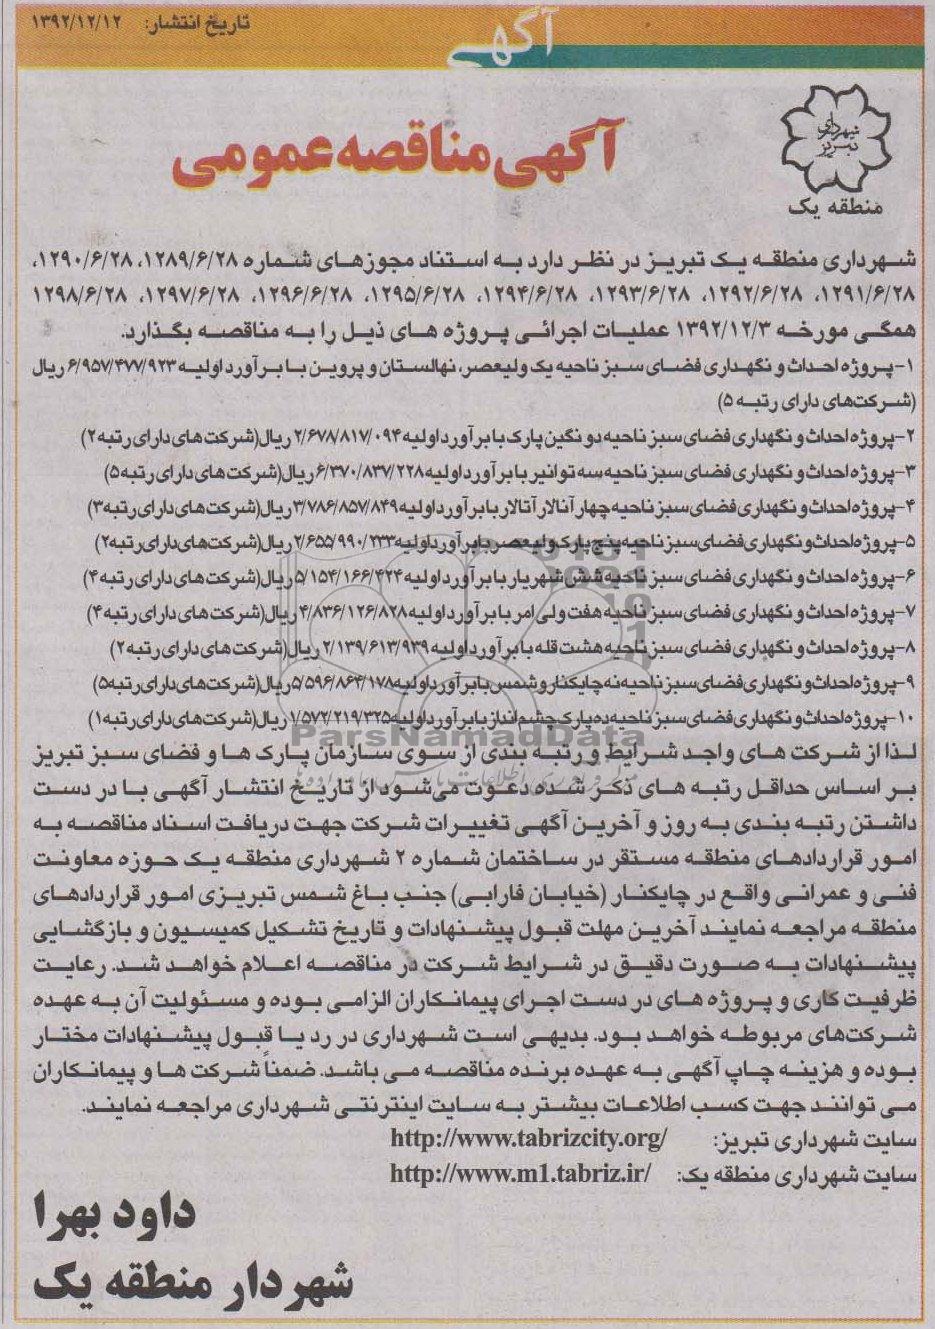 تاریخ انتشار: ۱۳۹۲/۱۲/۱۲
آگهی
شهرداری
تبریز
منطقه یک
آگهی مناقصه عمومی
شهرداری منطقه یک تبریز در نظر دارد به استناد مجوزهای شماره ۱۲۸۹/۶/۲۸، ۱۲۹۰/۶/۲۸،
۱۲۹۱/۶/۲۸، ۱۲۹۲/۶/۲۸، ۱۲۹۳/۶/۲۸، ۱۲۹۴/۶/۲۸، ۱۲۹۵/۶/۲۸، ۱۲۹۶/۶/۲۸، ۱۲۹۷/۶/۲۸، ۱۲۹۸/۶/۲۸
همگی مورخه ۱۳۹۲/۱۲/۳ عملیات اجرائی پروژه های ذیل را به مناقصه بگذارد.
۱-پروژه احداث و نگهداری فضای سبز ناحیه یک ولیعصر، نهالستان و پروین با برآورد اولیه ۶/۹۵۷/۴۷۷/۹۲۳ ریال
(شرکت‌های دارای رتبه ۵)
۲-پروژه احداث و نگهداری فضای سبز ناحیه دو نگین پارک با برآورد اولیه ۲/۶۷۸/۸۱۷/۰۹۴ ریال(شرکت های دارای رتبه ۲)
۳-پروژه احداث و نگهداری فضای سبز ناحیه سه توانیر با برآورد اولیه ۶/۳۷۰/۸۳۷/۲۲۸ ریال(شرکت های دارای رتبه ۵)
۴-پروژه احداث و نگهداری فضای سبز ناحیه چهار آنالار آتالار با برآورد اولیه ۳/۷۸۶/۸۵۷/۸۴۹ ریال(شرکت های دارای رتبه ۳)
۵-پروژه احداث و نگهداری فضای سبز ناحیه پنج پارک ولیعصر با برآورد اولیه ۲/۶۵۵/۹۹۰/۲۳۳ ریال(شرکت های دارای رتبه ۲)
۶-پروژه احداث و نگهداری فضای سبز ناحیه شش شهریار با برآورد اولیه ۵/۱۵۴/۱۶۶/۴۲۴ ریال(شرکت های دارای رتبه ۴)
۷-پروژه احداث و نگهداری فضای سبز ناحیه هفت ولی امر با برآورد اولیه ۴/۸۳۶/۱۲۶/۸۲۸ ریال(شرکت های دارای رتبه ۴)
۸-پروژه احداث و نگهداری فضای سبز ناحیه هشت قله با برآورد اولیه ۲/۱۳۹/۶۱۳/۹۳۹ ریال(شرکت های دارای رتبه ۲)
۹-پروژه احداث و نگهداری فضای سبز ناحیه نه چایکنار و شمس با برآورد اولیه ۵/۵۹۶/۸۶۴/۱۷۸ ریال(شرکت های دارای رتبه ۵)
۱۰-پروژه احداث و نگهداری فضای سبز ناحیه ده پارک چشم انداز با برآورد اولیه ۱/۵۷۲/۲۱۹/۳۲۵ ریال(شرکت های دارای رتبه ۱)
ParsNamadData
لذا از شرکت های واجد شرایط و رتبه بندی از سوی سازمان پارک ها و فضای سبز تبریز
بر اساس حداقل رتبه های ذکر شده دعوت می‌شود از تاریخ انتشار آگهی با در دست
داشتن رتبه بندی به روز و آخرین آگهی تغییرات شرکت جهت دریافت اسناد مناقصه به
امور قراردادهای منطقه مستقر در ساختمان شماره ۲ شهرداری منطقه یک حوزه معاونت
فنی و عمرانی واقع در چایکنار (خیابان فارابی) جنب باغ شمس تبریزی امور قراردادهای
منطقه مراجعه نمایند آخرین مهلت قبول پیشنهادات و تاریخ تشکیل کمیسیون و بازگشایی
پیشنهادات به صورت دقیق در شرایط شرکت در مناقصه اعلام خواهد شد. رعایت
ظرفیت کاری و پروژه های در دست اجرای پیمانکاران الزامی بوده و مسئولیت آن به عهده
شرکت‌های مربوطه خواهد بود. بدیهی است شهرداری در رد یا قبول پیشنهادات مختار
بوده و هزینه چاپ آگهی به عهده برنده مناقصه می باشد. ضمناً شرکت ها و پیمانکاران
می توانند جهت کسب اطلاعات بیشتر به سایت اینترنتی شهرداری مراجعه نمایند.
سایت شهرداری تبریز: http://www.tabrizcity.org/
سایت شهرداری منطقه یک: http://www.m1.tabriz.ir/
داود بهرا
شهردار منطقه یک